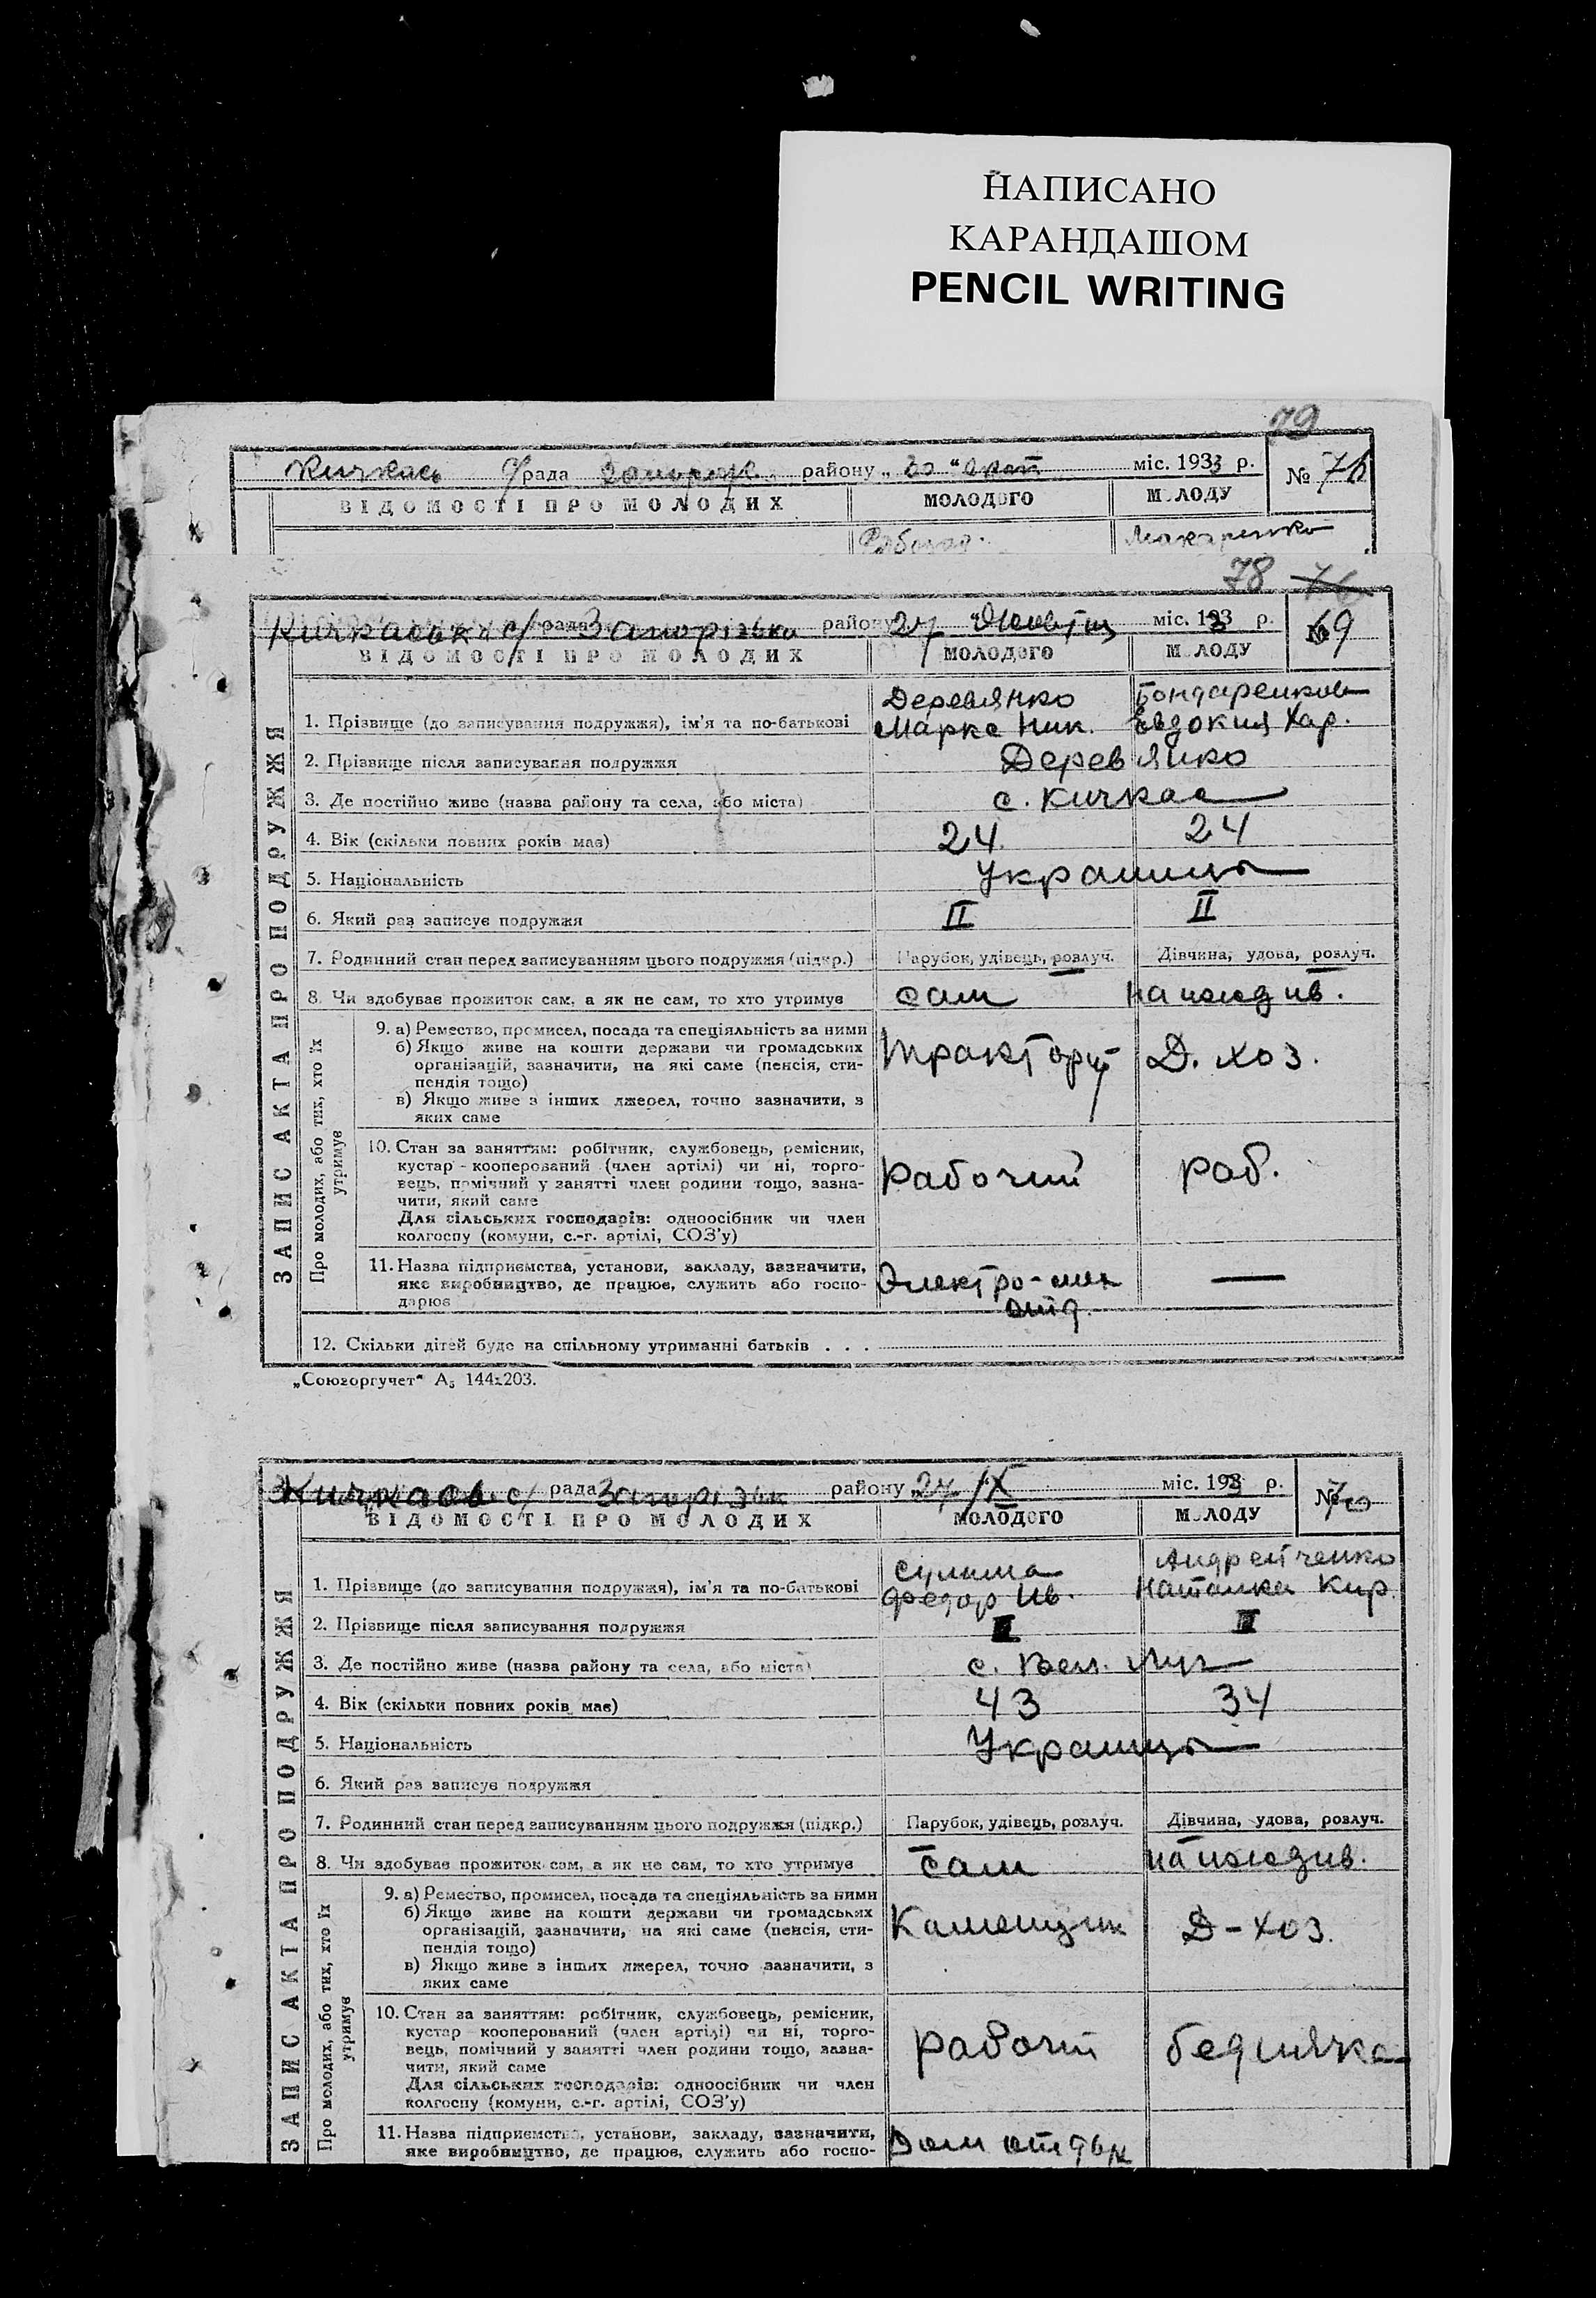 НАПИСАНО
КАРАНДАШОМ
PENCIL WRITING
79
Кичкась с/рада району „ 20 “ міс. 1933 р. № 76
ВІДОМОСТІ ПРО МОЛОДИХ МОЛОДОГО МОЛОДУ
Макаренко
78 76
Кичкаськ с/рада Запорізьки району 27 Жовтня міс. 193 р. 69
ВІДОМОСТІ ПРО МОЛОДИХ МОЛОДОГО МОЛОДУ
ЗАПИС АКТА ПРО ПОДРУЖЖЯ
Деревянко Бондаренков
1. Прізвище (до записування подружжя), ім'я та по-батькові Марке Ник. Евдокия Хар.
2. Прізвище після записування подружжя Деревянко
3. Де постійно живе (назва району та села, або міста) с. Кичкас
4. Вік (скільки повних років має) 24 24
5. Національність Украинцы
6. Який раз записує подружжя II II
7. Родинний стан перед записуванням цього подружжя (підкр.) Парубок, удівець, розлуч. Дівчина, удова, розлуч.
8. Чи здобуває прожиток сам, а як не сам, то хто утримує сам на иждив.
Про молодих, або тих, хто їх утримує
9. а) Ремество, промисел, посада та спеціяльність за ними
б) Якщо живе на кошти держави чи громадських
організацій, зазначити, на які саме (пенсія, сти- Тракторист Д. хоз.
пендія тощо)
в) Якщо живе з інших джерел, точно зазначити, з
яких саме
10. Стан за заняттям: робітник, службовець, ремісник,
кустар - кооперований (член артілі) чи ні, торго-
вець, помічний у занятті член родини тощо, зазна- Рабочий раб.
чити, який саме
Для сільських господарів: одноосібник чи член
колгоспу (комуни, с.-г. артілі, СОЗ'у)
11. Назва підприємства, установи, закладу, зазначити,
яке виробництво, де працює, служить або госпо- Электро-мех —
дарює отд.
12. Скільки дітей буде на спільному утриманні батьків . . .
„Союзоргучет“ А₅ 144x203.
Кичкась с/ рада Запорізьк району „27 IX міс. 193 р. № 70
ВІДОМОСТІ ПРО МОЛОДИХ МОЛОДОГО МОЛОДУ
ЗАПИС АКТА ПРО ПОДРУЖЖЯ
Сулима Андрейченко
1. Прізвище (до записування подружжя), ім'я та по-батькові Федор Ив. Наталка Кир.
2. Прізвище після записування подружжя
3. Де постійно живе (назва району та села, або міста) с. Вел. Луг
4. Вік (скільки повних років має) 43 34
5. Національність Украинцы
6. Який раз записує подружжя
7. Родинний стан перед записуванням цього подружжя (підкр.) Парубок, удівець, розлуч. Дівчина, удова, розлуч.
8. Чи здобуває прожиток сам, а як не сам, то хто утримує сам на иждив.
Про молодих, або тих, хто їх утримує
9. а) Ремество, промисел, посада та спеціяльність за ними
б) Якщо живе на кошти держави чи громадських
організацій, зазначити, на які саме (пенсія, сти- Каменщик Д-хоз.
пендія тощо)
в) Якщо живе з інших джерел, точно зазначити, з
яких саме
10. Стан за заняттям: робітник, службовець, ремісник,
кустар кооперований (член артілі) чи ні, торго-
вець, помічний у занятті член родини тощо, зазна- рабочий беднячка
чити, який саме
Для сільських господарів: одноосібник чи член
колгоспу (комуни, с.-г. артілі, СОЗ'у)
11. Назва підприємства, установи, закладу, зазначити,
яке виробництво, де працює, служить або госпо- Дом